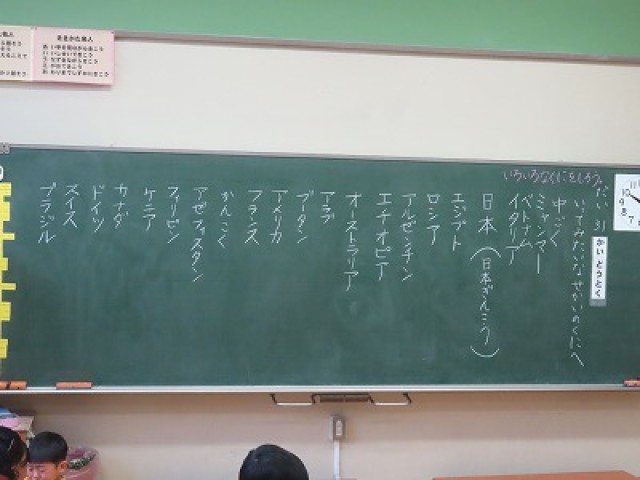 だい31かい どうとく
いろいろなくにをしろう。
いってみたいなせかいのくにへ
中ごく
ミャンマー
ベトナム
イタリア
日本(日本がんこう)
エジプト
ロシア
アルゼンチン
エチオピア
オーストラリア
アラブ
ブータン
アメリカ
フランス
かんこく
アゼフィスタン
フィリピン
ケニア
カナダ
ドイツ
スイス
ブラジル
11
10
9
8
7